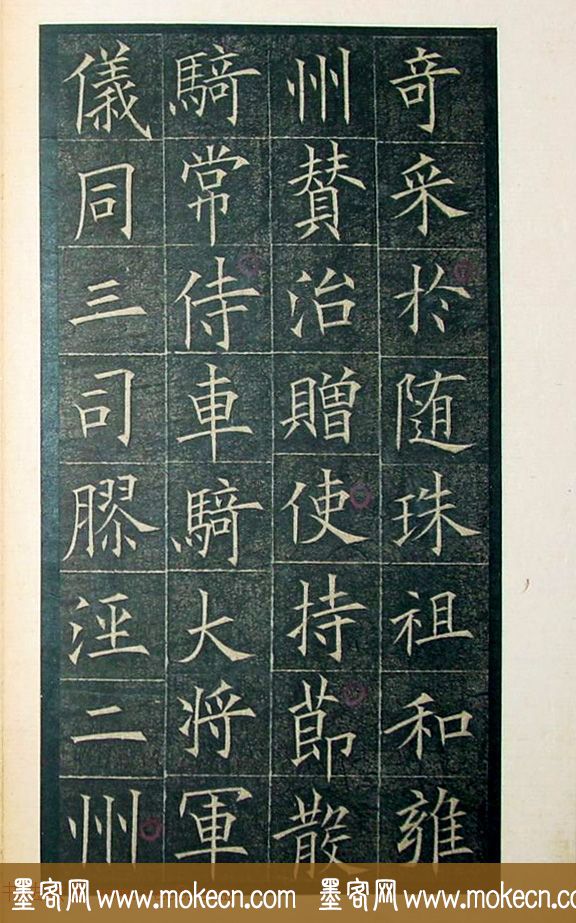 奇采於随珠祖和雍
州賛治贈使持節散
騎常侍車騎大将軍
儀同三司膠涇二州
墨客网 www.mokecn.com 墨客网 www.mokecn.co